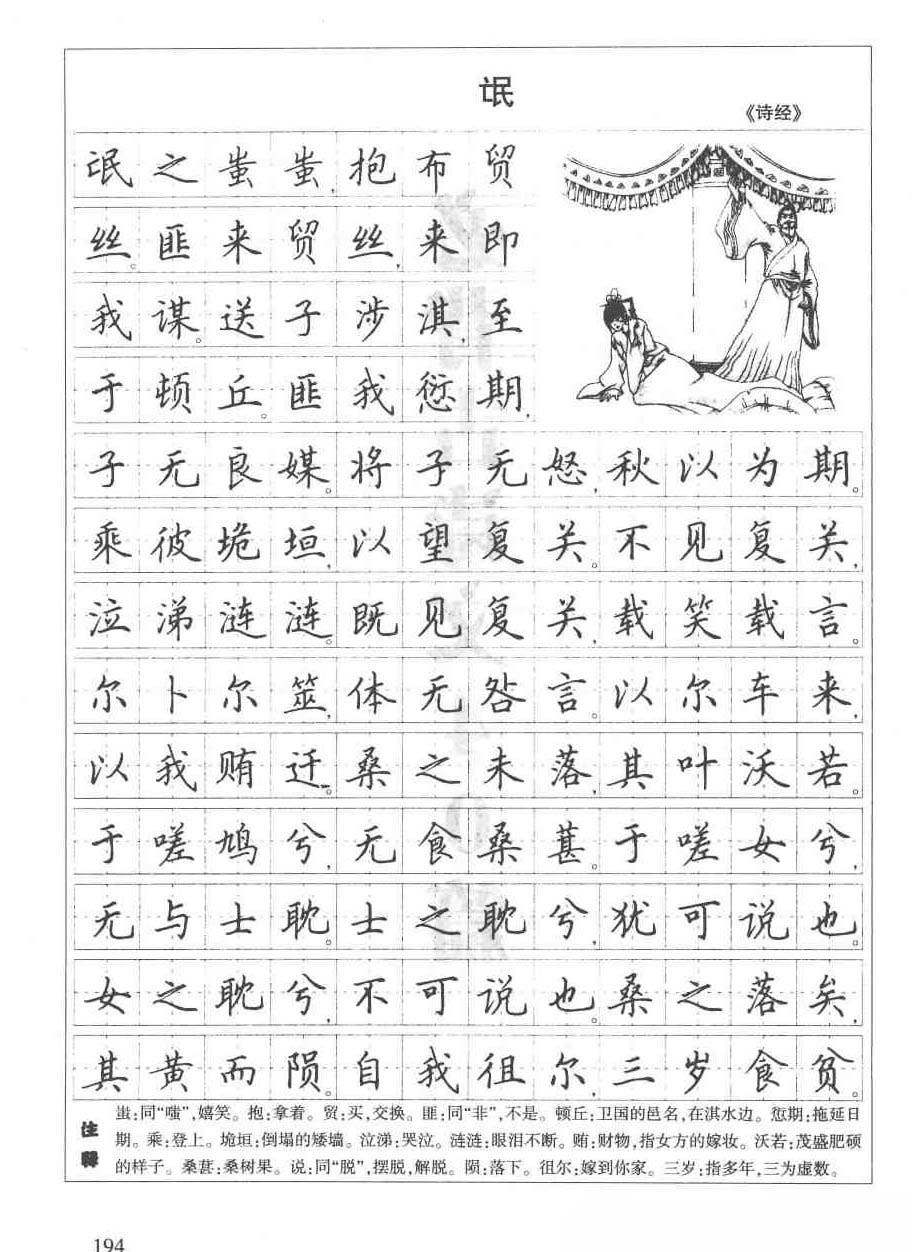 氓
《诗经》
氓之蚩蚩,抱布贸
丝。匪来贸丝,来即
我谋。送子涉淇,至
于顿丘。匪我愆期,
子无良媒。将子无怒,秋以为期。
乘彼垝垣,以望复关。不见复关,
泣涕涟涟。既见复关,载笑载言。
尔卜尔筮,体无咎言。以尔车来,
以我贿迁。桑之未落,其叶沃若。
于嗟鸠兮,无食桑葚。于嗟女兮,
无与士耽。士之耽兮,犹可说也。
女之耽兮,不可说也。桑之落矣,
其黄而陨。自我徂尔,三岁食贫。
注释
蚩:同“嗤”,嬉笑。抱:拿着。贸:买,交换。匪:同“非”,不是。顿丘:卫国的邑名,在淇水边。愆期:拖延日
期。乘:登上。垝垣:倒塌的矮墙。泣涕:哭泣。涟涟:眼泪不断。贿:财物,指女方的嫁妆。沃若:茂盛肥硕
的样子。桑葚:桑树果。说:同“脱”,摆脱,解脱。陨:落下。徂尔:嫁到你家。三岁:指多年,三为虚数。
194